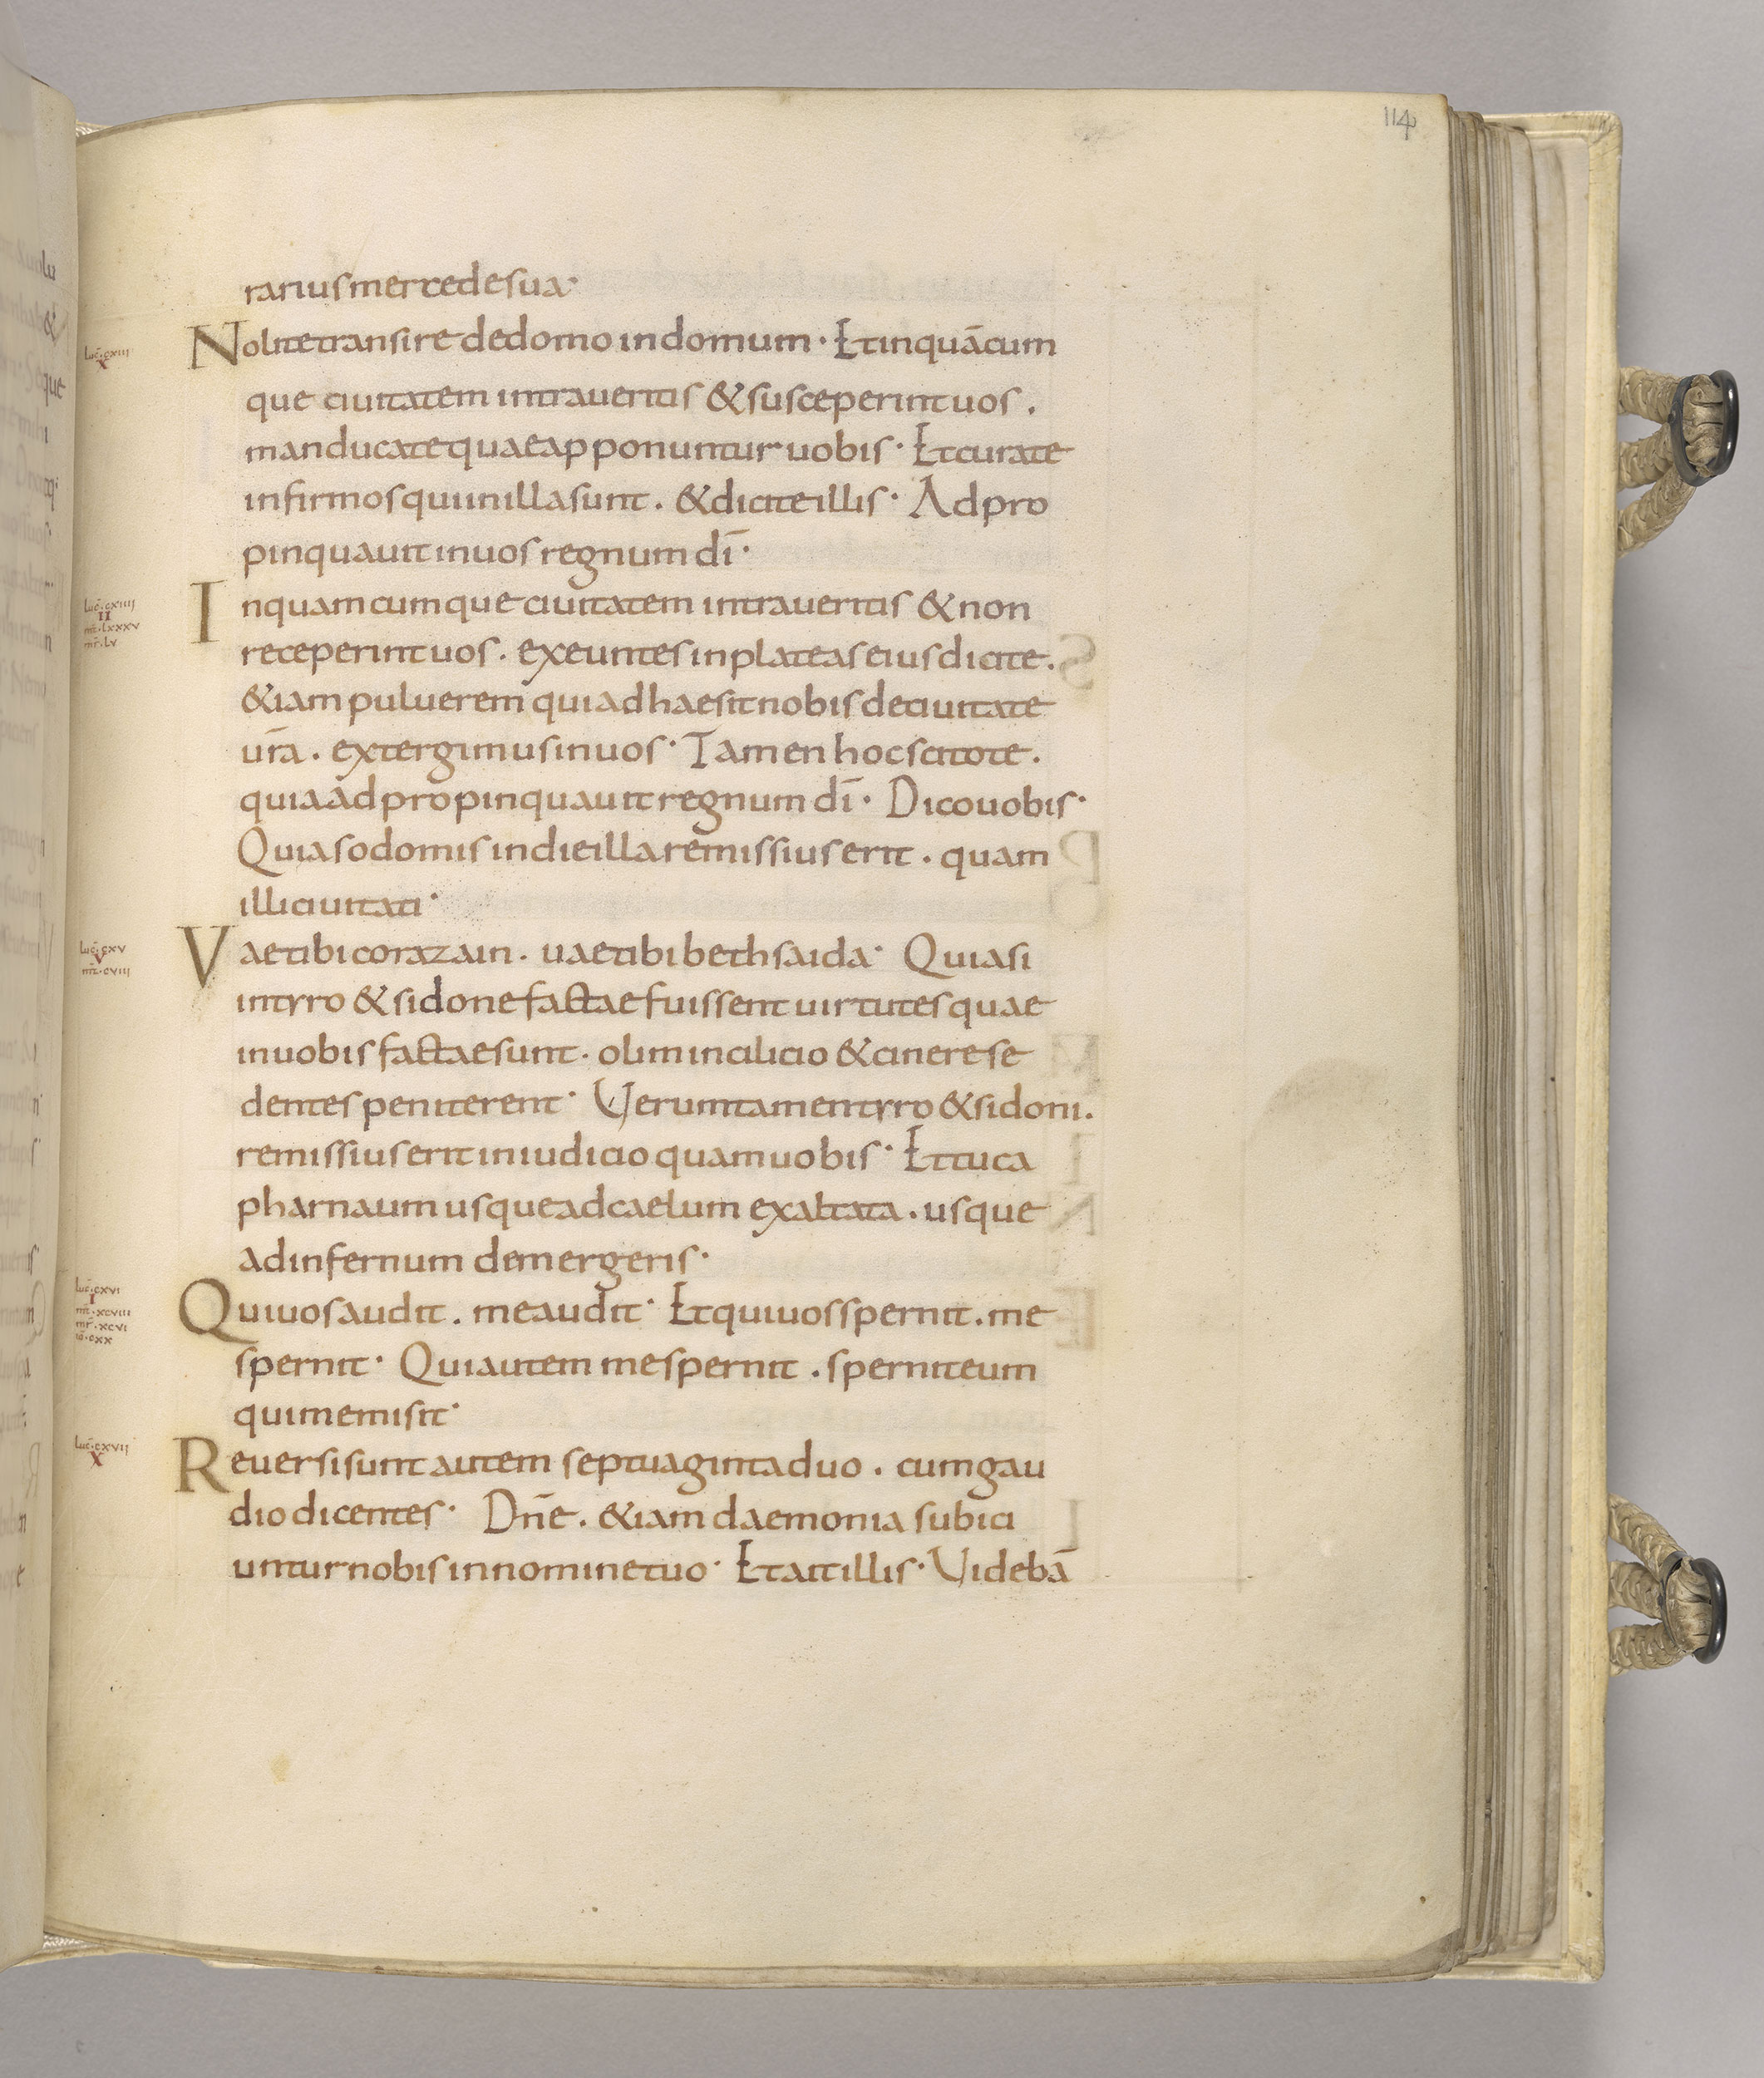 114
rarius mercede sua·
Nolite transire de domo in domum· Et in quācum
que ciuitatem intraueritis & susceperint uos.
manducate quae apponuntur uobis· Et curate
infirmos qui in illa sunt. & dicite illis· Adpro
pinquauit in uos regnum dī·
In quamcumque ciuitatem intraueritis & non
receperint uos. exeuntes in plateas eius dicite.
&iam puluerem qui adhaesit nobis de ciuitate
ūra. extergimus in uos· Tamen hoc scitote.
quia adpropinquauit regnum dī· Dico uobis·
Quia sodomis in die illa remissius erit. quam
illi ciuitati·
Vae tibi corazain. uae tibi bethsaida· Quia si
in tyro & sidone factae fuissent uirtutes quae
in uobis factae sunt. olim in cilicio & cinere se
dentes peniterent· Uerumtamen tyro & sidoni.
remissius erit in iudicio quam uobis· Et tu ca
pharnaum usque ad caelum exaltata. usque
ad infernum demergeris·
Qui uos audit. me audit· Et qui uos spernit. me
spernit· Qui autem me spernit. spernit eum
qui me misit·
Reuersi sunt autem septuaginta duo. cum gau
dio dicentes· Dnē. &iam daemonia subici
untur nobis in nomine tuo· Et ait illis· Uidebā
luc̄·cxiii
x
luc̄·cxiiii
II
mt̄·Lxxxv
mr̄·Lv
luc̄·cxv
v
mt̄·cviii
luc̄·cxvi
I
mt̄·xcviii
mr̄·xcvi
iō·cxx
luc̄·cxvii
x